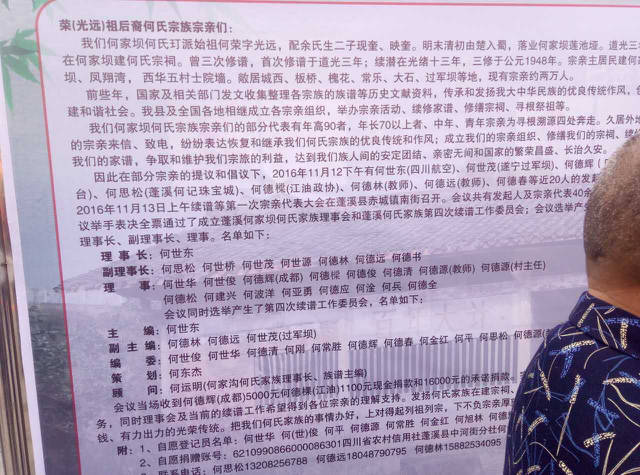 荣(光远)祖后裔何氏宗族宗亲们:
我们何家坝何氏玎派始祖何荣字光远,配余氏生二子现奎、映奎。明末清初由楚入蜀,落业何家坝莲池垭。道光三年
在何家坝建何氏宗祠。曾三次修谱,首次修谱于道光三年;续潜在光绪十三年,三修于公元1948年。宗亲主居民建何家
坝、凤翔湾,西华五村土院墙。敞居城西、板桥、槐花、常乐、大石、过军坝等地,现有宗亲约两万人。
前些年,国家及相关部门发文收集整理各宗族的族谱等历史文献资料,传承和发扬我大中华民族的优良传统作风,创
建和谐社会。我县及全国各地相继成立各宗亲组织,举办宗亲活动、续修家谱、修缮宗祠、寻根祭祖等。
我们何家坝何氏宗族宗亲们的部分代表有年高90者,年长70以上者、中年、青年宗亲为寻根溯源四处奔走。久居外地
的宗亲来信、致电,纷纷表达恢复和继承我们何氏宗族的优良传统和作风;成立我们的宗亲组织、修缮我们的宗祠、续
我们的家谱,争取和维护我们宗族的利益,达到我们族人间的安定团结、亲密无间和国家的繁荣昌盛、长治久安。
因此在部分宗亲的提议和倡议下,2016年11月12下午有何世东(四川航空)、何世茂(遂宁过军坝)、何德辉(
台)、何思松(蓬溪何记珠宝城)、何德樑(江油政协)、何德林(教师)、何德远(教师)、何德春等近20人的发起
2016年11月13日上午续谱等第一次宗亲代表大会在蓬溪县赤城镇南街召开。会议共有发起人及宗亲代表40余
议举手表决全票通过了成立蓬溪何家坝何氏家族理事会和蓬溪何氏家族第四次续谱工作委员会;会议选举产生
理事长、副理事长、理事。名单如下:
理 事 长:何世东
副理事长:何思松 何世桥 何世茂 何世源 何德林 何德远 何德书
理 事:何世华 何世俊 何德辉(成都) 何德樑 何德俊 何德清 何德源(教师) 何德源(村主任)
何德松 何建兴 何波洋 何亚勇 何德应 何淦 何兵 何德全
会议同时选举产生了第四次续谱工作委员会,名单如下:
主 编:何世东
副 主 编:何德林 何德远 何世茂(过军坝)
编 委:何世俊 何世华 何德清 何刚 何常胜 何德辉 何德春 何金红 何平 何思松 何德源
策 划:何东杰
顾 问:何运明(何家沟何氏家族理事长、族谱主编)
会议当场收到何德辉(成都)5000元何德樑(江油)1100元现金捐款和16000元的承诺捐款。
务,同时理事会及当前的续谱工作希望得到各位宗亲的理解支持。发扬何氏家族在建宗祠、
钱、有力出力的光荣传统。把我们何氏家族的事情办好,上对得起列祖列宗,下不负宗亲厚
附:1、自愿登记员名单:何世华 何(世)俊 何平 何德源 何常胜 何金红 何旭林 何德
2、自愿捐赠账号:6210990866000086301四川省农村信用社蓬溪县中河街分社
3、联系电话:何思松13208256788 何德远18048790795 何德林15882534095